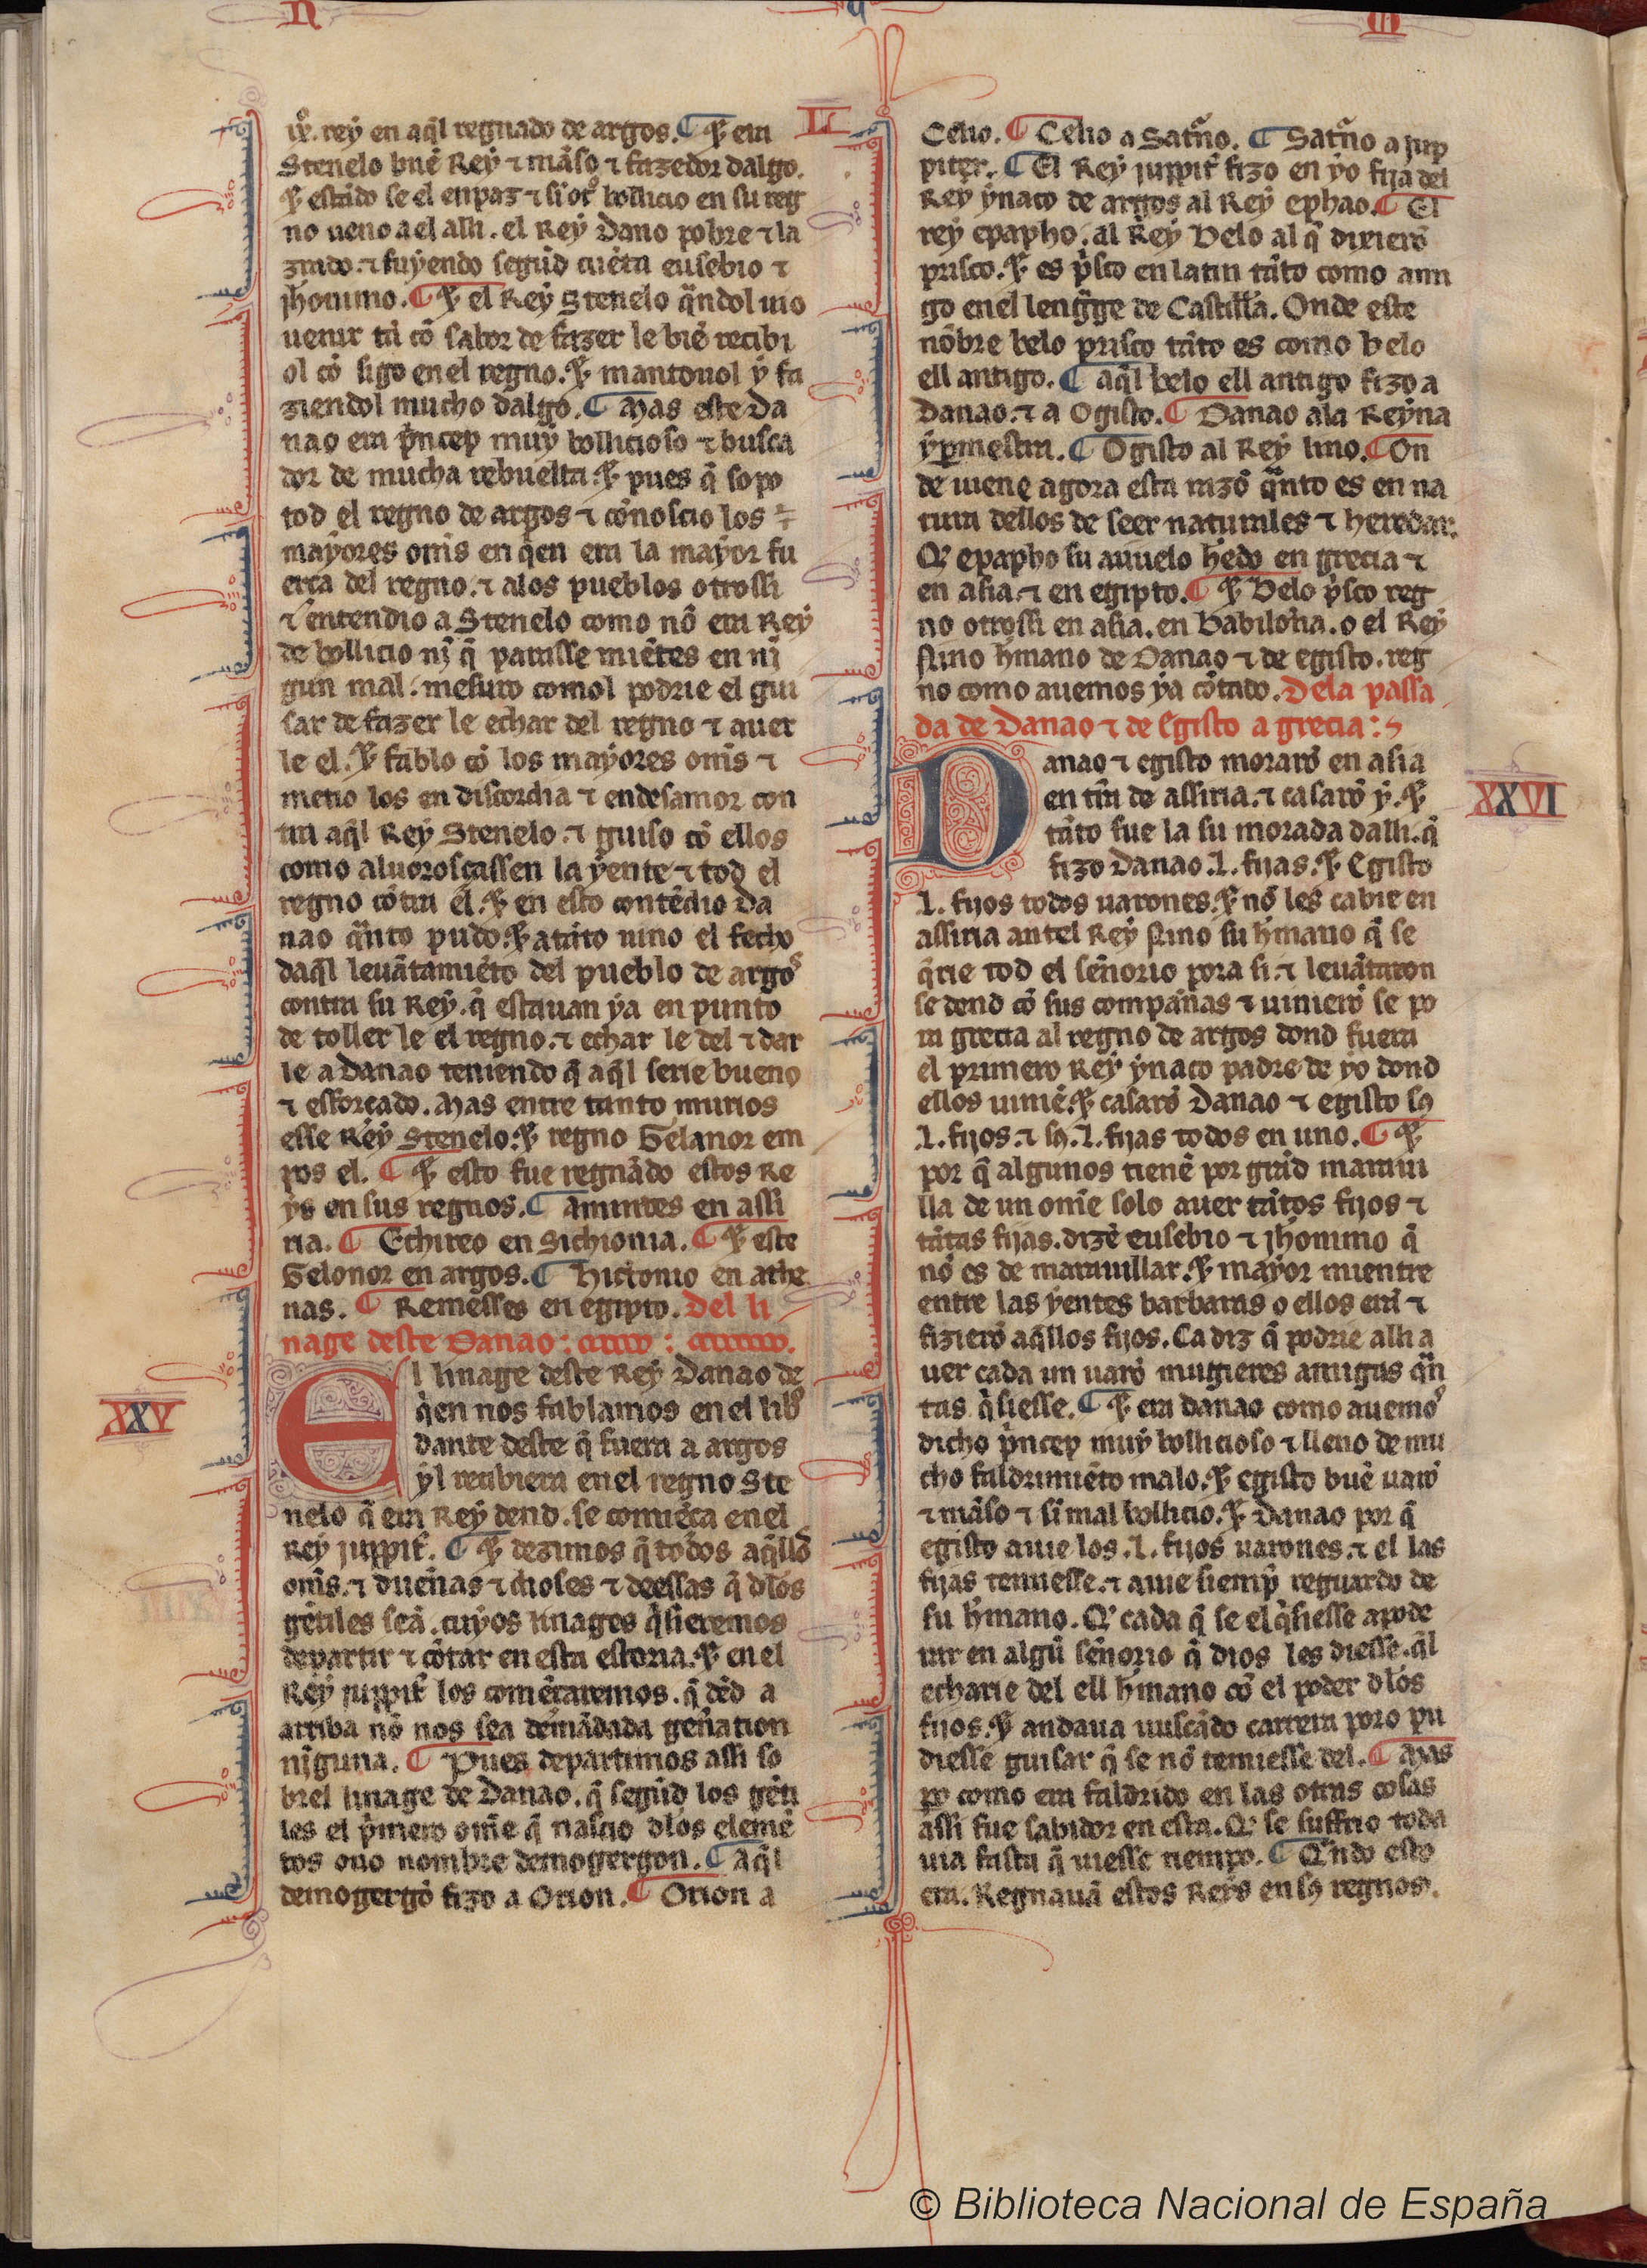 rey en aq̃l regnado de argos. ¶ ⁊ era
Stenelo buẽ Rey ⁊ mãso ⁊ fazedor dalgo.
⁊ estãdo se el en paz ⁊ sĩ otº bollicio en su reg
no ueno a el alli. el Rey Dano pobre ⁊ la
zrado. ⁊ fuyendo segũd cuẽta eusebio ⁊
jheronimo. ¶ ⁊ el Rey Stenelo q̃ndol uio
uenir tã cõ sabor de fazer le biẽ recibi
ol cõ sigo en el regno. ⁊ mantouol y fa
ziendol mucho dalgo. ¶ Mas este Da
nao era p̃ncep muy bollicioso ⁊ busca
dor de mucha rebuelta. ⁊ pues q̃ sopo
tod el regno de argos ⁊ cõnoscio los
mayores om̃s en q̃en era la mayor fu
erça del regno. ⁊ a los pueblos otrossi
⁊ entendio a Stenelo como nõ era Rey
de bollicio nĩ q̃ parasse miẽtes en nĩ
gun mal. mesuro comol podrie el gui
sar de fazer le echar del regno ⁊ auer
le el. ⁊ fablo cõ los mayores om̃s ⁊
metio los en discordia ⁊ en desamor con
tra aq̃l Rey Stenelo. ⁊ guiso cõ ellos
como aluoroscassen la yente ⁊ tod el
regno cõtra el. ⁊ en esto contẽdio Da
nao q̃nto pudo. ⁊ atãto uino el fecho
daq̃l leuãtamiẽto del pueblo de argos
contra su Rey. q̃ estauan ya en punto
de toller le el regno. ⁊ echar le del ⁊ dar
le a Danao teniendo q̃ aq̃l serie bueno
⁊ esforçado. Mas entre tanto murios
esse Rey Stenelo. ⁊ regno Gelanor em
pos el. ¶ ⁊ esto fue regnãdo estos Re
ys en sus regnos. ¶ Amintes en assi
ria. ¶ Echireo en Sichionia. ¶ ⁊ este
Gelonor en argos. ¶ Hictonio en athe
nas. ¶ Remesses en egipto. Del li
nage deste Danao:
XXV
El linage deste Rey Danao de
q̃en nos fablamos en el libº
dante deste q̃ fuera a argos
yl recibiera en el regno Ste
nelo q̃ era Rey dend. se comiẽça en el
Rey juppit̃. ¶ ⁊ dezimos q̃ todos aq̃llos
om̃s. ⁊ dueñas ⁊ dioses ⁊ deessas q̃ dlos
gẽtiles seã. cuyos linages q̃sieremos
departir ⁊ cõtar en esta estoria. ⁊ en el
Rey juppit̃ los comẽçaremos. q̃ dẽd a
arriba nõ nos sea demãdada geñation
nĩguna. ¶ Pues departimos assi so
brel linage de Danao. q̃ segũd los gẽti
les el p̃mero om̃e q̃ nascio dlos elemẽ
tos ouo nombre demogergon. ¶ Aq̃l
demogergõ fizo a Orion. ¶ Orion a
LI
Celio. ¶ Celio a Sat̃no. ¶ Sat̃no a jup
piter. ¶ El Rey juppit̃ fizo en yo fija del
Rey ynaco de argos al Rey ephao. ¶ El
rey epapho. al Rey Belo al q̃ dixierõ
prisco. ⁊ es p̃sco en latin tãto como anti
go en el lengage de Castilla. Onde este
nõbre belo prisco tãto es como belo
ell antigo. ¶ Aq̃l belo ell antigo fizo a
Danao. ⁊ a Ogisto. ¶ Danao a la Reyna
ypmestra. ¶ Ogisto al Rey lino. ¶ On
de uiene agora esta razõ q̃nto es en na
tura dellos de seer naturales ⁊ heredar.
Q̃ epapho su auuelo hedo en grecia ⁊
en asia. ⁊ en egipto. ¶ ⁊ Belo p̃sco reg
no otrossi en asia. en babilonia. o el Rey
Nino h̃mano de Danao ⁊ de egisto. reg
no como auemos ya cõtado. Dela passa
da de Danao ⁊ de Egisto a grecia:
XXVI
Danao ⁊ egisto morarõ en asia
en tr̃a de assiria. ⁊ casarõ y. ⁊
tãto fue la su morada dalli. q̃
fizo Danao .L. fijas. ⁊ Egisto
.L. fijos todos uarones. ⁊ nõ les cabie en
assiria antel Rey Nino su h̃mano q̃ se
q̃rie tod el señorio pora si. ⁊ leuãtaron
se dend cõ sus compañas ⁊ uinierõ se po
ra grecia al regno de argos dond fuera
el primero Rey ynaco padre de yo dond
ellos uiniẽ. ⁊ casarõ Danao ⁊ egisto sꝰ
.L. fijos. ⁊ sꝰ .L. fijas todos en uno. ¶ ⁊
por q̃ algunos tienẽ por grãd maraui
lla de un om̃e solo auer tãtos fijos ⁊
tãtas fijas. dizẽ eusebio ⁊ jheronimo q̃
nõ es de marauillar. ⁊ mayor mientre
entre las yentes barbaras o ellos erã ⁊
fizierõ aq̃llos fijos. Ca diz q̃ podrie alli a
uer cada un uarõ mugieres amigas q̃n
tas q̃siesse. ¶ ⁊ era danao como auemoˢ
dicho p̃ncep muy bollicioso ⁊ lleno de mu
cho faldrimiẽto malo. ⁊ egisto buẽ uarõ
⁊ mãso ⁊ sĩ mal bollicio. ⁊ Danao por q̃
egisto auie los .L. fijos uarones. ⁊ el las
fijas temiesse. ⁊ auie siemp̃ reguardo de
su h̃mano. Q̃ cada q̃ se el q̃siesse apode
rar en algũ señorio q̃ dios les diesse. q̃l
echarie del ell h̃mano cõ el poder dlos
fijos. ⁊ andaua buscãdo carrera poro pu
diesse guisar q̃ se nõ temiesse del. ¶ Mas
p̃o como era faldrido en las otras cosas
assi fue sabidor en esta. Q̃ se suffrio toda
uia fasta q̃ uiesse tiempo. ¶ Q̃ndo esto
era. Regnauã estos Reys en sꝰ regnos.
© Biblioteca Nacional de España